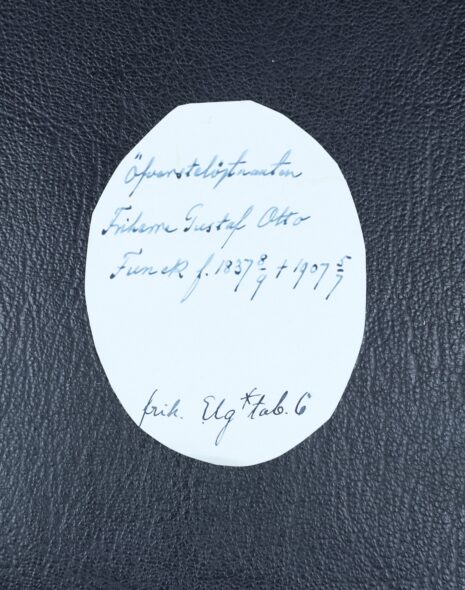 Öfverstelöjtnanten
Friherre Gustaf Otto
Funck f. 1837 8/9 + 1907 5/7
frih. Elg* tab. 6